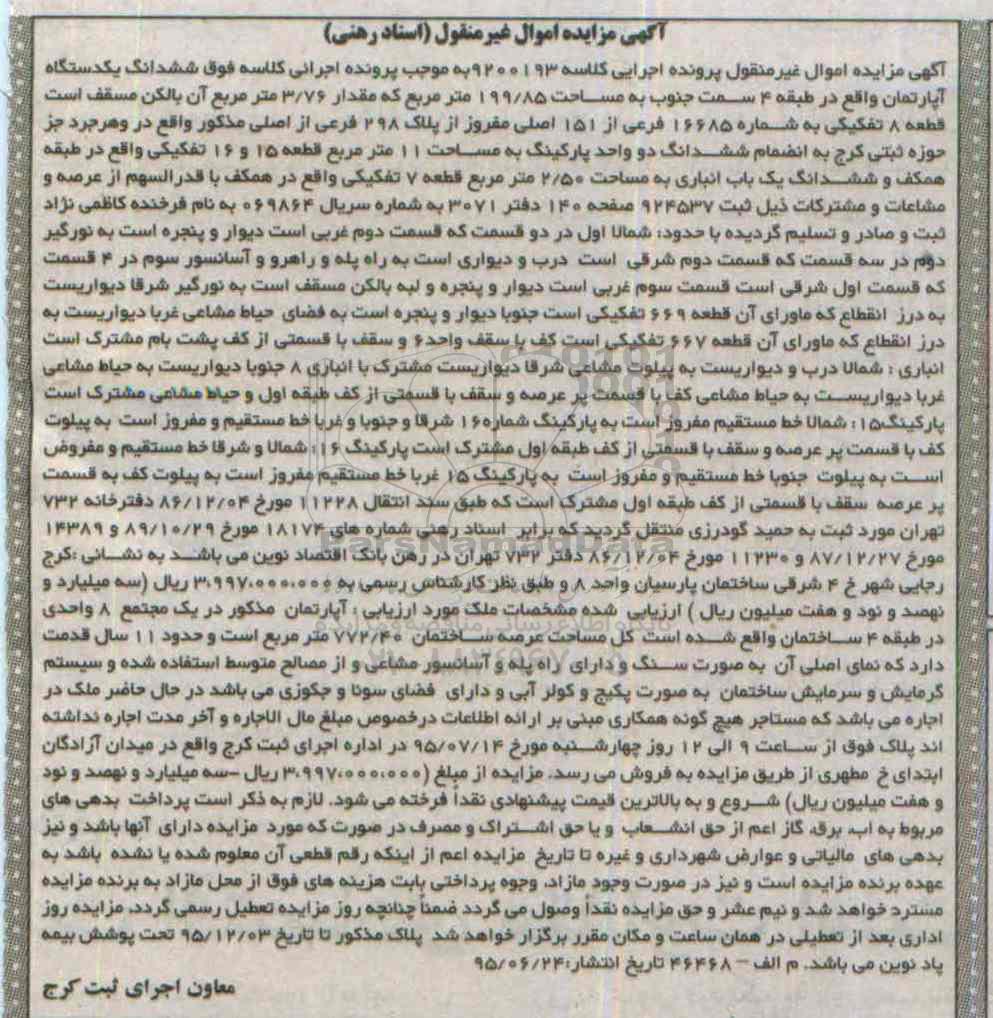 آگهی مزایده اموال غیرمنقول (اسناد رهنی)
آگهی مزایده اموال غیرمنقول پرونده اجرایی کلاسه ۹۲۰۰۱۹۳به موجب پرونده اجرائی کلاسه فوق ششدانگ یکدستگاه
آپارتمان واقع در طبقه ۴ سمت جنوب به مساحت ۱۹۹/۸۵ متر مربع که مقدار ۳/۷۶ متر مربع آن بالکن مسقف است
قطعه ۸ تفکیکی به شماره ۱۶۶۸۵ فرعی از ۱۵۱ اصلی مفروز از پلاک ۲۹۸ فرعی از اصلی مذکور واقع در وهرجرد جز
حوزه ثبتی کرج به انضمام ششدانگ دو واحد پارکینگ به مساحت ۱۱ متر مربع قطعه ۱۵ و ۱۶ تفکیکی واقع در طبقه
همکف و ششدانگ یک باب انباری به مساحت ۲/۵۰ متر مربع قطعه ۷ تفکیکی واقع در همکف با قدرالسهم از عرصه و
مشاعات و مشترکات ذیل ثبت ۹۲۴۵۳۷ صفحه ۱۴۰ دفتر ۳۰۷۱ به شماره سریال ۰۶۹۸۶۴ به نام فرخنده کاظمی نژاد
ثبت و صادر و تسلیم گردیده با حدود: شمالا اول در دو قسمت که قسمت دوم غربی است دیوار و پنجره است به نورگیر
دوم در سه قسمت که قسمت دوم شرقی است درب و دیواری است به راه پله و راهرو و آسانسور سوم در ۴ قسمت
که قسمت اول شرقی است قسمت سوم غربی است دیوار و پنجره و لبه بالکن مسقف است به نورگیر شرقا دیواریست
به درز انقطاع که ماورای آن قطعه ۶۶۹ تفکیکی است جنوبا دیوار و پنجره است به فضای حیاط مشاعی غربا دیواریست به
درز انقطاع که ماورای آن قطعه ۶۶۷ تفکیکی است کف با سقف واحد۶ و سقف با قسمتی از کف پشت بام مشترک است
انباری : شمالا درب و دیواریست به پیلوت مشاعی شرقا دیواریست مشترک با انباری ۸ جنوبا دیواریست به حیاط مشاعی
غربا دیواریست به حیاط مشاعی کف با قسمت پر عرصه و سقف با قسمتی از کف طبقه اول و حیاط مشاعی مشترک است
پارکینگ۱۵: شمالا خط مستقیم مفروز است به پارکینگ شماره۱۶ شرقا و جنوبا و غربا خط مستقیم و مفروز است به پیلوت
کف با قسمت پر عرصه و سقف با قسمتی از کف طبقه اول مشترک است پارکینگ ۱۶: شمالا و شرقا خط مستقیم و مفروض
است به پیلوت جنوبا خط مستقیم و مفروز است به پارکینگ ۱۵ غربا خط مستقیم مفروز است به پیلوت کف به قسمت
پر عرصه سقف با قسمتی از کف طبقه اول مشترک است که طبق سند انتقال ۱۱۲۲۸ مورخ ۸۶/۱۲/۰۴ دفترخانه ۷۳۲
تهران مورد ثبت به حمید گودرزی منتقل گردید که برابر اسناد رهنی شماره های ۱۸۱۷۴ مورخ ۸۹/۱۰/۲۹ و ۱۴۳۸۹
مورخ ۸۷/۱۲/۲۷ و ۱۱۲۳۰ مورخ ۸۶/۱۲/۰۴ دفتر ۷۳۲ تهران در رهن بانک اقتصاد نوین می باشد به نشانی :کرج
رجایی شهر خ ۴ شرقی ساختمان پارسیان واحد ۸ و طبق نظر کارشناس رسمی به ۳،۹۹۷،۰۰۰،۰۰۰ ریال (سه میلیارد و
نهصد و نود و هفت میلیون ریال ) ارزیابی شده مشخصات ملک مورد ارزیابی : آپارتمان مذکور در یک مجتمع ۸ واحدی
در طبقه ۴ ساختمان واقع شده است کل مساحت عرصه ساختمان ۷۷۲/۴۰ متر مربع است و حدود ۱۱ سال قدمت
دارد که نمای اصلی آن به صورت سنگ و دارای راه پله و آسانسور مشاعی و از مصالح متوسط استفاده شده و سیستم
گرمایش و سرمایش ساختمان به صورت پکیج و کولر آبی و دارای فضای سونا و جکوزی می باشد در حال حاضر ملک در
اجاره می باشد که مستاجر هیچ گونه همکاری مبنی بر ارائه اطلاعات درخصوص مبلغ مال الاجاره و آخر مدت اجاره نداشته
اند پلاک فوق از ساعت ۹ الی ۱۲ روز چهارشنبه مورخ ۹۵/۰۷/۱۴ در اداره اجرای ثبت کرج واقع در میدان آزادگان
ابتدای خ مطهری از طریق مزایده به فروش می رسد. مزایده از مبلغ (۳،۹۹۷،۰۰۰،۰۰۰ ریال –سه میلیارد و نهصد و نود
و هفت میلیون ریال) شروع و به بالاترین قیمت پیشنهادی نقداً فرخته می شود. لازم به ذکر است پرداخت بدهی های
مربوط به اب، برق، گاز اعم از حق انشعاب و یا حق اشتراک و مصرف در صورت که مورد مزایده دارای آنها باشد و نیز
بدهی های مالیاتی و عوارض شهرداری و غیره تا تاریخ مزایده اعم از اینکه رقم قطعی آن معلوم شده یا نشده باشد به
عهده برنده مزایده است و نیز در صورت وجود مازاد، وجوه پرداختی بابت هزینه های فوق از محل مازاد به برنده مزایده
مسترد خواهد شد و نیم عشر و حق مزایده نقداً وصول می گردد ضمناً چنانچه روز مزایده تعطیل رسمی گردد، مزایده روز
اداری بعد از تعطیلی در همان ساعت و مکان مقرر برگزار خواهد شد پلاک مذکور تا تاریخ ۹۵/۱۲/۰۳ تحت پوشش بیمه
پاد نوین می باشد. م الف – ۴۶۴۶۸ تاریخ انتشار:۹۵/۰۶/۲۴
معاون اجرای ثبت کرج
ParsNamadData